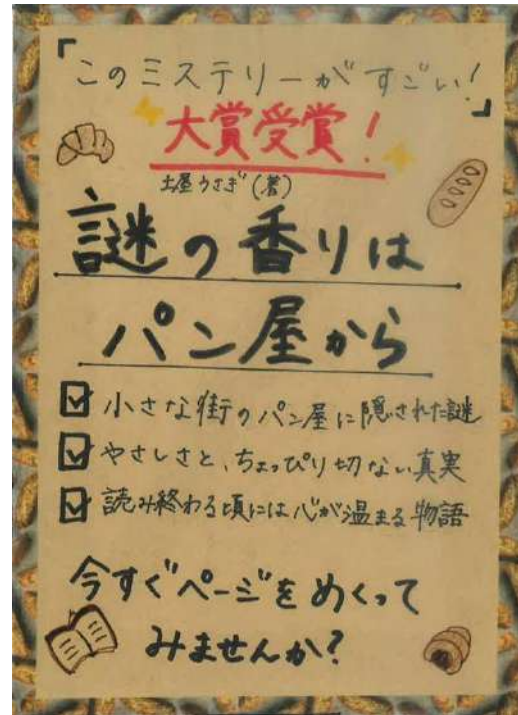 「このミステリーがすごい!」
大賞受賞!
土屋うさぎ(著)
謎の香りは
パン屋から
☑ 小さな街のパン屋に隠された謎
☑ やさしさと、ちょっぴり切ない真実
☑ 読み終わる頃には心が温まる物語
今すぐページをめくって
みませんか?